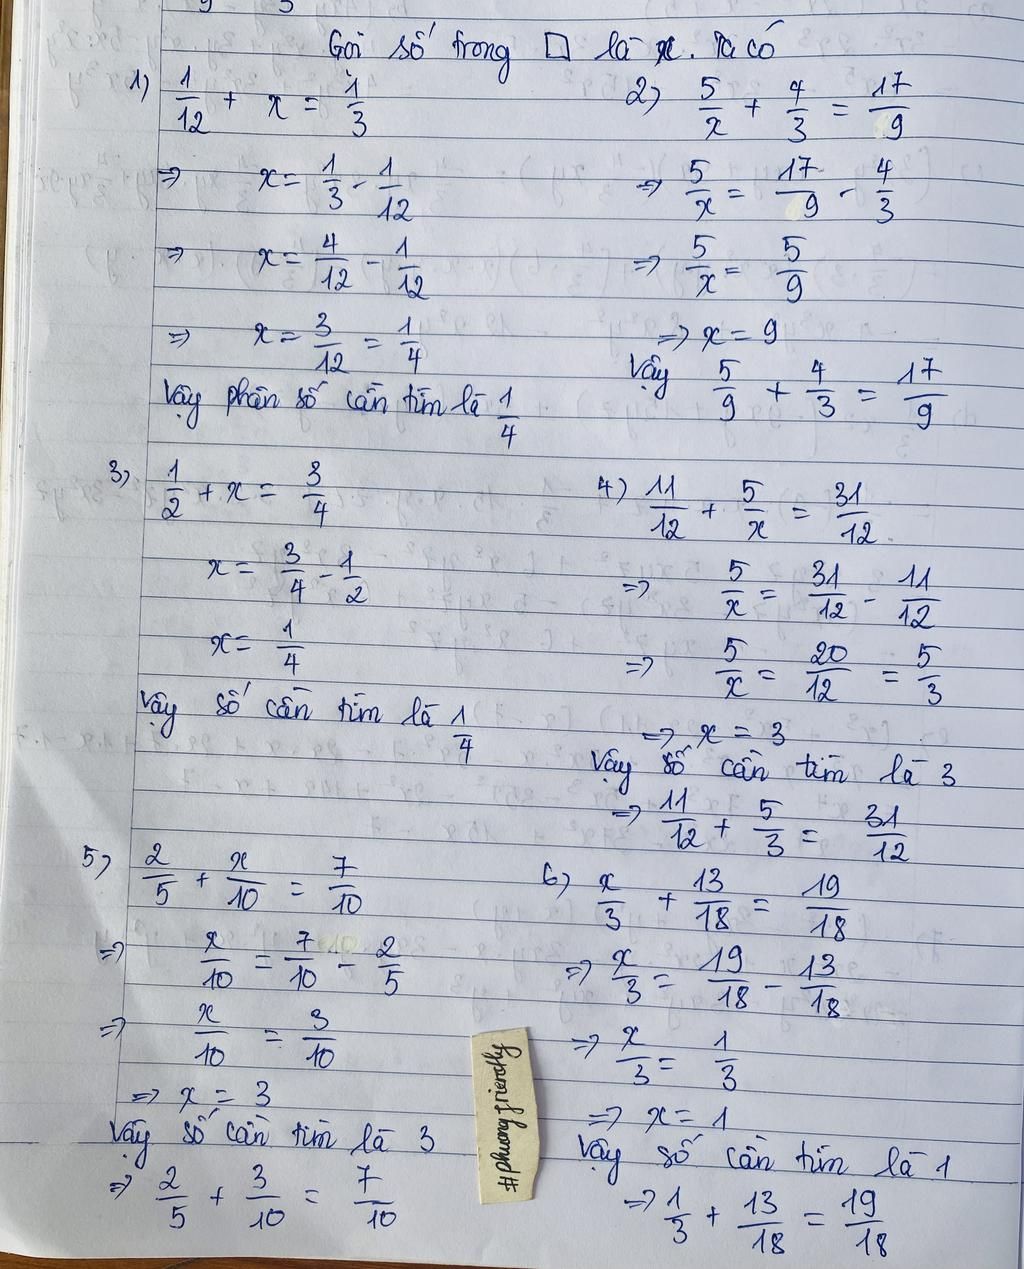 Gọi số trong □ là x. Ta có
1) 1/12 + x = 1/3
⇒ x = 1/3 - 1/12
⇒ x = 4/12 - 1/12
⇒ x = 3/12 = 1/4
Vậy phân số cần tìm là 1/4
2) 5/x + 4/3 = 17/9
⇒ 5/x = 17/9 - 4/3
⇒ 5/x = 5/9
⇒ x = 9
Vậy 5/9 + 4/3 = 17/9
3) 1/2 + x = 3/4
x = 3/4 - 1/2
x = 1/4
Vậy số cần tìm là 1/4
4) 11/12 + 5/x = 31/12
⇒ 5/x = 31/12 - 11/12
⇒ 5/x = 20/12 = 5/3
⇒ x = 3
Vậy số cần tìm là 3
⇒ 11/12 + 5/3 = 31/12
5) 2/5 + x/10 = 7/10
⇒ x/10 = 7/10 - 2/5
⇒ x/10 = 3/10
⇒ x = 3
Vậy số cần tìm là 3
⇒ 2/5 + 3/10 = 7/10
6) x/3 + 13/18 = 19/18
⇒ x/3 = 19/18 - 13/18
⇒ x/3 = 1/3
⇒ x = 1
Vậy số cần tìm là 1
⇒ 1/3 + 13/18 = 19/18
#phuongfriendly